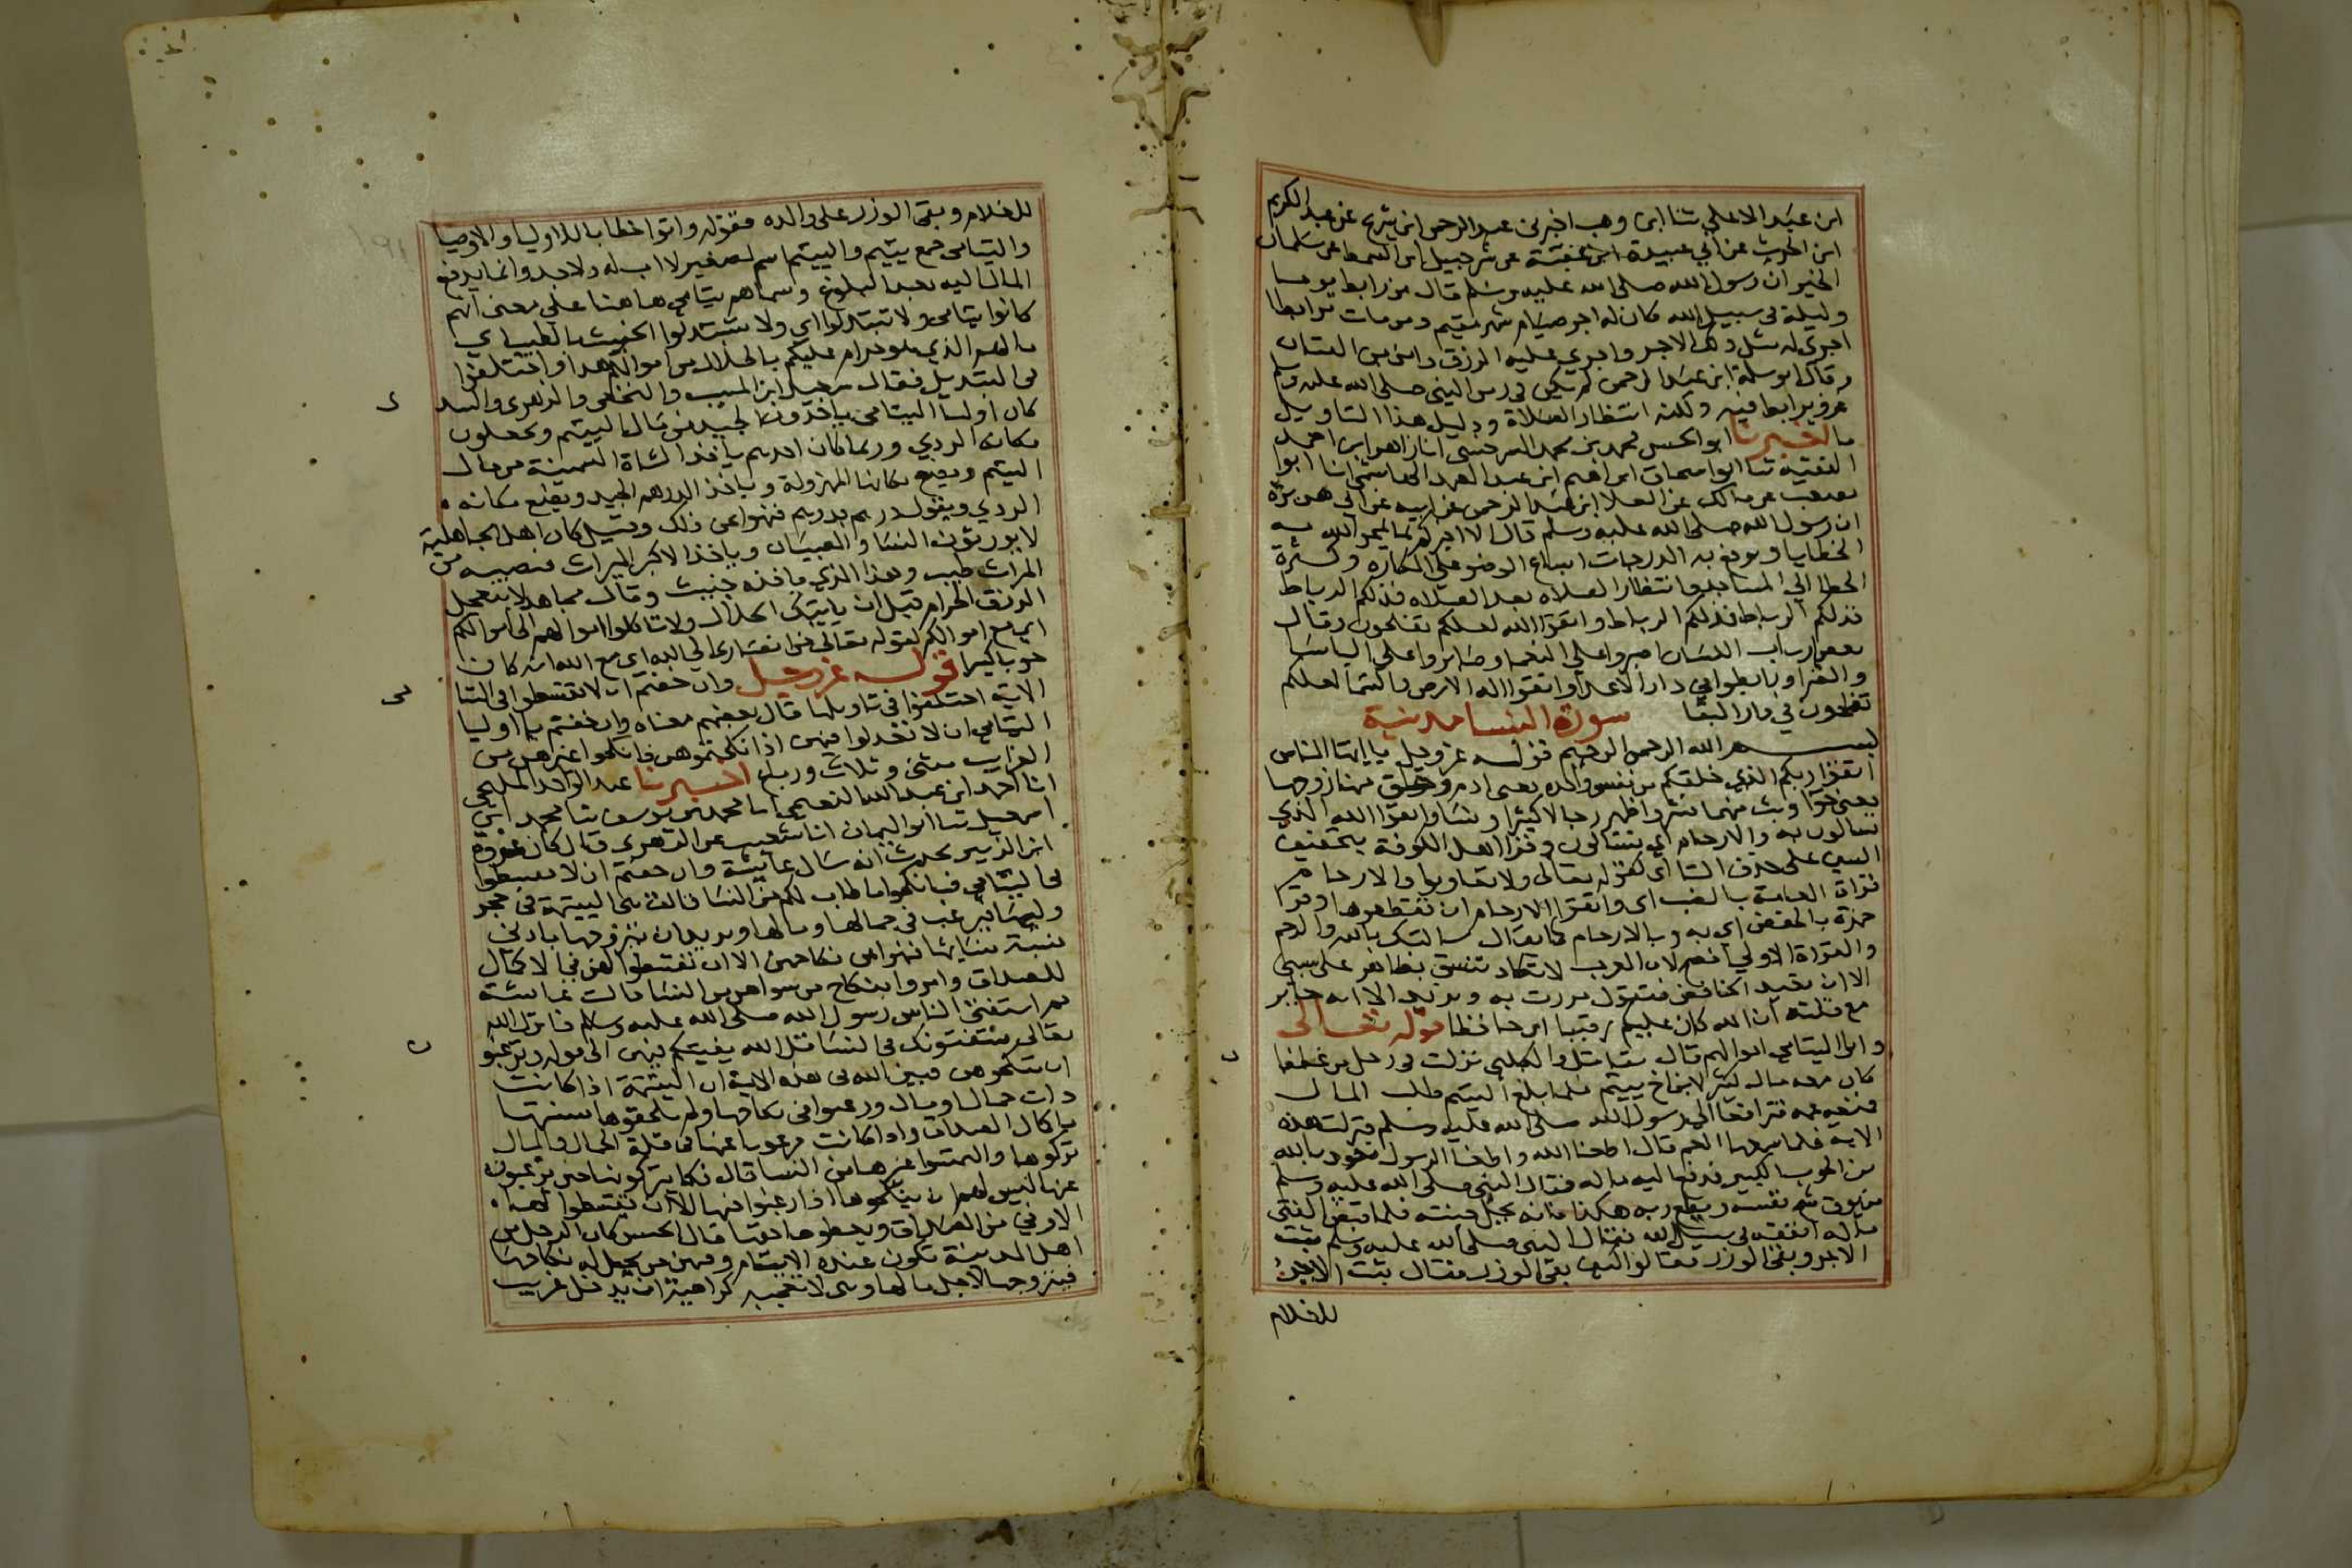 ابن عبد الاعلي ثنا ابن وهب اخبرني عبد الرحمن ابن شريح عن عبد الكريم
ابن الحرث عن ابي عبيدة ابن عقبة عن شرحبيل ابن السمط عن سلمان
الخير ان رسول الله صلى الله عليه وسلم قال من رابط يوما
وليلة في سبيل الله كان له اجر صيام شهر مقيم ومن مات مرابطا
اجري له مثل ذلك الاجر واجري عليه الرزق وامن من الفتان
وقال ابو سلمة ابن عبد الرحمن لم يكن في زمن النبي صلى الله عليه وسلم
غزو يرابط فيه ولكنه انتظار الصلاة ودليل هذا التاويل
ما اخبرنا ابو الحسن محمد بن محمد السرخسي انا زاهر ابن احمد
الفقيه ثنا ابو اسحاق ابراهيم ابن عبد الصمد الهاشمي انا ابوا
مصعب عن مالك عن العلا ابن عبد الرحمن عن ابيه عن ابي هريرة
ان رسول الله صلى الله عليه وسلم قال الا اخبركم بما يمحو الله به
الخطايا ويرفع به الدرجات اسباغ الوضو على المكاره وكثرة
الخطا الي المساجد وانتظار الصلاه بعد الصلاه فذلكم الرباط
فذلكم الرباط فذلكم الرباط واتقوا الله لعلكم تفلحون وقال
بعض ارباب اللسان اصبروا علي النعما وصابروا علي الباسا
والضرا ورابطوا في دار الاعدا واتقوا اله الارض والسما لعلكم
تفلحون في دار البقا سورة النسا مدنية
بسم الله الرحمن الرحيم قوله عز وجل يا ايها الناس
اتقوا ربكم الذي خلقكم من نفس واحده يعني ادم وخلق منها زوجها
يعني حوا وبث منهما نشر واظهر رجالا كثيرا ونسا واتقوا الله الذي
تسالون به والارحام اي تتسالون وقرا اهل الكوفة بتخفيف
السين على حذف التا اي كقوله تعالى ولا تعاونوا والارحام
قراة العامة بالنصب اي واتقوا الارحام ان تقطعوها وقرا
حمزة بالخفض اي به وبالارحام كما يقال سالتك بالله والرحم
والقراة الاولي افصح لان العرب لا تكاد تنسق بظاهر على مكني
الا ان تعيد الخافض فتقول مررت به وبزيد الا انه جايز
مع قلته ان الله كان عليكم رقيبا اي حافظا قوله تعالى
واتوا اليتامي اموالهم قال مقاتل والكلبي نزلت في رجل من غطفان
كان معه مال كثير لابن اخ يتيم فلما بلغ اليتيم طلب المال
فمنعه عمه فترافعا الي رسول الله صلى الله عليه وسلم فنزلت هذه
الايه فلما سمعها العم قال اطعنا الله واطعنا الرسول نعوذ بالله
من الحوب الكبير فدفع اليه ماله فقال النبي صلى الله عليه وسلم
من يوق شح نفسه ويطع ربه هكذا فانه يحل جنته فلما قبض الفتى
ماله انفقه في سبيل الله فقال النبي صلى الله عليه وسلم ثبت
الاجر وبقي الوزر فقالوا كيف بقي الوزر فقال ثبت الاجر
للغلام
للغلام وبقي الوزر على والده فقوله واتوا خطاب للاوليا والاوصيا
واليتامى جمع يتيم واليتيم اسم لصغير لا اب له ولا جد وانما يدفع
المال اليه بعد البلوغ وسماهم يتامي هاهنا علي معنى انهم
كانوا يتامى ولا تبتدلوا اي ولا تستبدلوا الخبيث بالطيب اي
مالهم الذي هو حرام عليكم بالحلال من اموالكم واختلفوا
في التبديل فقال سعيد ابن المسيب والنخعي والزهري والسدي
كان اوليا اليتامى ياخذون الجيد من مال اليتيم ويجعلون
مكانه الردي وربما كان احدهم ياخذ الشاة السمينة من مال
اليتيم ويضع مكانها المهزولة وياخذ الدرهم الجيد ويضع مكانه
الردي ويقول درهم بدرهم فنهوا عن ذلك وقيل كان اهل الجاهلية
لا يورثون النسا والصبيان وياخذ الاكبر الميراث فنصيبه من
الميراث طيب وهذا الذي ياخذه خبيث وقال مجاهد لا تتعجل
الرزق الحرام قبل ان ياتيك الحلال ولا تاكلوا اموالهم الى اموالكم
اي مع اموالكم لقوله تعالى من انصاري الي الله اي مع الله انه كان
حوبا كبيرا قوله عز وجل وان خفتم ان لا تقسطوا في اليتامى
الاية اختلفوا في تاويلها قال بعضهم معناه وان خفتم يا اوليا
اليتامي ان لا تعدلوا فيهن اذا نكحتموهن فانكحوا غيرهن من
الغرايب مثنى وثلاث ورباع اخبرنا عبد الواحد المليحي
انا احمد ابن عبد الله النعيمي انا محمد بن يوسف ثنا محمد ابن
اسمعيل ثنا ابو اليمان انا شعيب عن الزهري قال كان عروة
ابن الزبير يحدث انه سال عايشة وان خفتم ان لا تقسطوا
في اليتامي فانكحوا ما طاب لكم من النسا قالت هي اليتيمة في حجر
وليها فيرغب في جمالها ومالها ويريد ان يتزوجها بادني
من سنة نسايها فنهوا عن نكاحهن الا ان تقسطوا لهن في اكمال
للصداق وامروا بنكاح من سواهن من النسا قالت عايشة
ثم استفتى الناس رسول الله صلى الله عليه وسلم فانزل الله
تعالى يستفتونك في النسا قل الله يفتيكم فيهن الى قوله وترغبون
ان تنكحوهن فبين الله في هذه الاية ان اليتيمة اذا كانت
ذات جمال ومال ورغبوا في نكاحها ولم يلحقوها بسنتها
باكمال الصداق واذا كانت مرغوبا عنها في قلة المال والجمال
تركوها والتمسوا غيرها من النسا قال فكما يتركونها حين يرغبون
عنها ليس لهم ان ينكحوها اذا رغبوا فيها الا ان يقسطوا لها
الاوفي من الصداق ويعطوها حقها قال الحسن كان الرجل من
اهل المدينة تكون عنده الايتام وفيهن من يحل له نكاحها
فيتزوجها لاجل مالها وهي لا تعجبه كراهية ان يدخل غريب